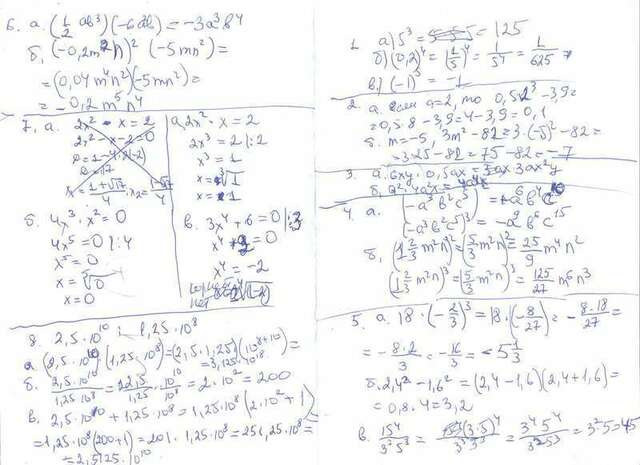 6. а. (1/2 ab³)(-6ab) = -3a²b⁴
б. (-0,2m²n)² (-5mn²) =
= (0,04 m⁴n²)(-5mn²) =
= -0,2 m⁵n⁴
7. а.
2x² - x = 2
2x² - x - 2 = 0
x = (1+√17)/4, x₂ = (1-√17)/4
а, 2x² · x = 2
2x³ = 2 |:2
x³ = 1
x = ³√1
x = 1
б. 4x³ · x² = 0
4x⁵ = 0 |:4
x⁵ = 0
x = ⁵√0
x = 0
в. 3x⁴ + 6 = 0 |:3
x⁴ = 0
x⁴ = -2
нет
8. 2,5·10¹⁰ ; 1,25·10⁸
а. (2,5·10¹⁰)(1,25·10⁸) = (2,5·1,25)(10⁸⁺¹⁰) =
= 3,125·10¹⁸
б. 2,5·10¹⁰/1,25·10⁸ = 2,5/1,25 · 10¹⁰/10⁸ = 2·10² = 200
в. 2,5·10¹⁰ + 1,25·10⁸ = 1,25·10⁸(2·10² + 1)
= 1,25·10⁸(200+1) = 201·1,25·10⁸ = 251,25·10⁸ =
= 2,5125·10¹⁰
1. а) 5³ = 5·5·5 = 125
б) (0,2)⁴ = (1/5)⁴ = 1/5⁴ = 1/625
в) (-1)³ = -1
2. а. если a=2, то 0,5a³ - 3,9 =
= 0,5·8 - 3,9 = 4 - 3,9 = 0,1
б. m=-5, 3m² - 82 = 3·(-5)² - 82 =
= 3·25 - 82 = 75 - 82 = -7
3. а. 6xy · 0,5ax = 3ax²y
4. а.
(-a³b²c⁵)³ = -a⁹b⁶c¹⁵
б. (1 2/3 m²n)² = (5/3 m²n)² = 25/9 m⁴n²
(1 2/3 m²n)³ = (5/3 m²n)³ = 125/27 m⁶n³
5. а. 18·(-2/3)³ = 18·(-8/27) = -8·18/27 =
= -8·2/3 = -16/3 = -5 1/3
б. 2,4² - 1,6² = (2,4-1,6)(2,4+1,6) =
= 0,8·4 = 3,2
в. 15⁴/3²5³ = (3·5)⁴/3²5³ = 3⁴5⁴/3²5³ = 3²5 = 45